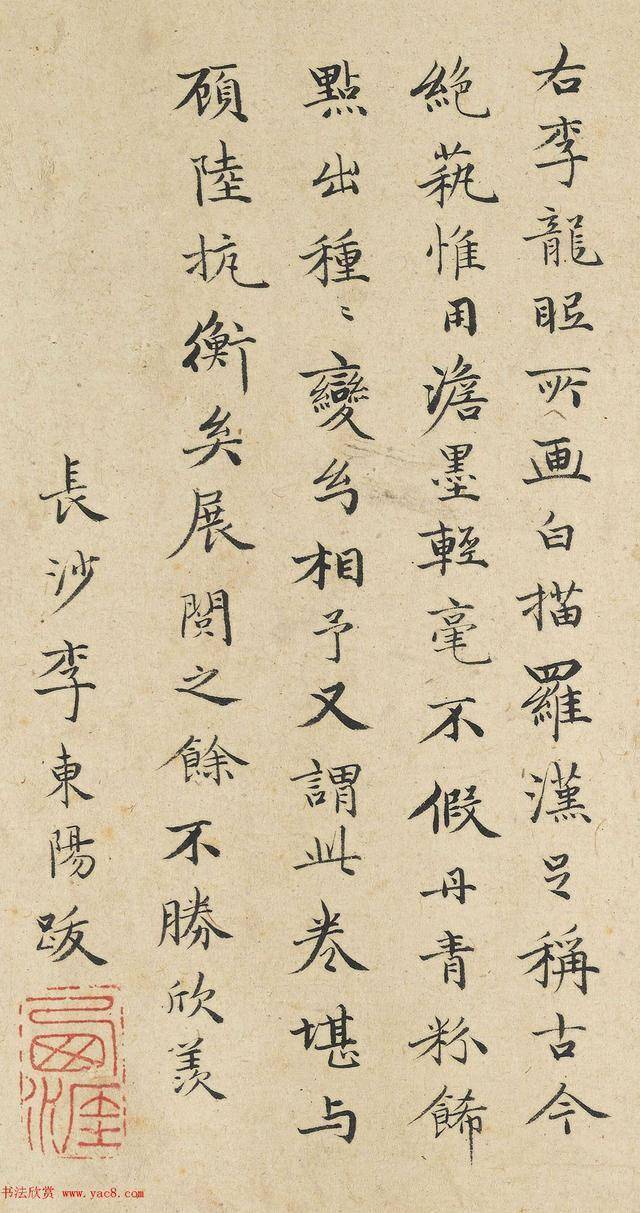 右李龍眠所画白描羅漢足稱古今
絶蓺惟用澹墨輕毫不假丹青粉餙
點出種〻變幻相予又謂此卷堪与
顾陸抗衡矣展閲之餘不勝欣羡
長沙李東陽跋
书法欣赏 www.yac8.com